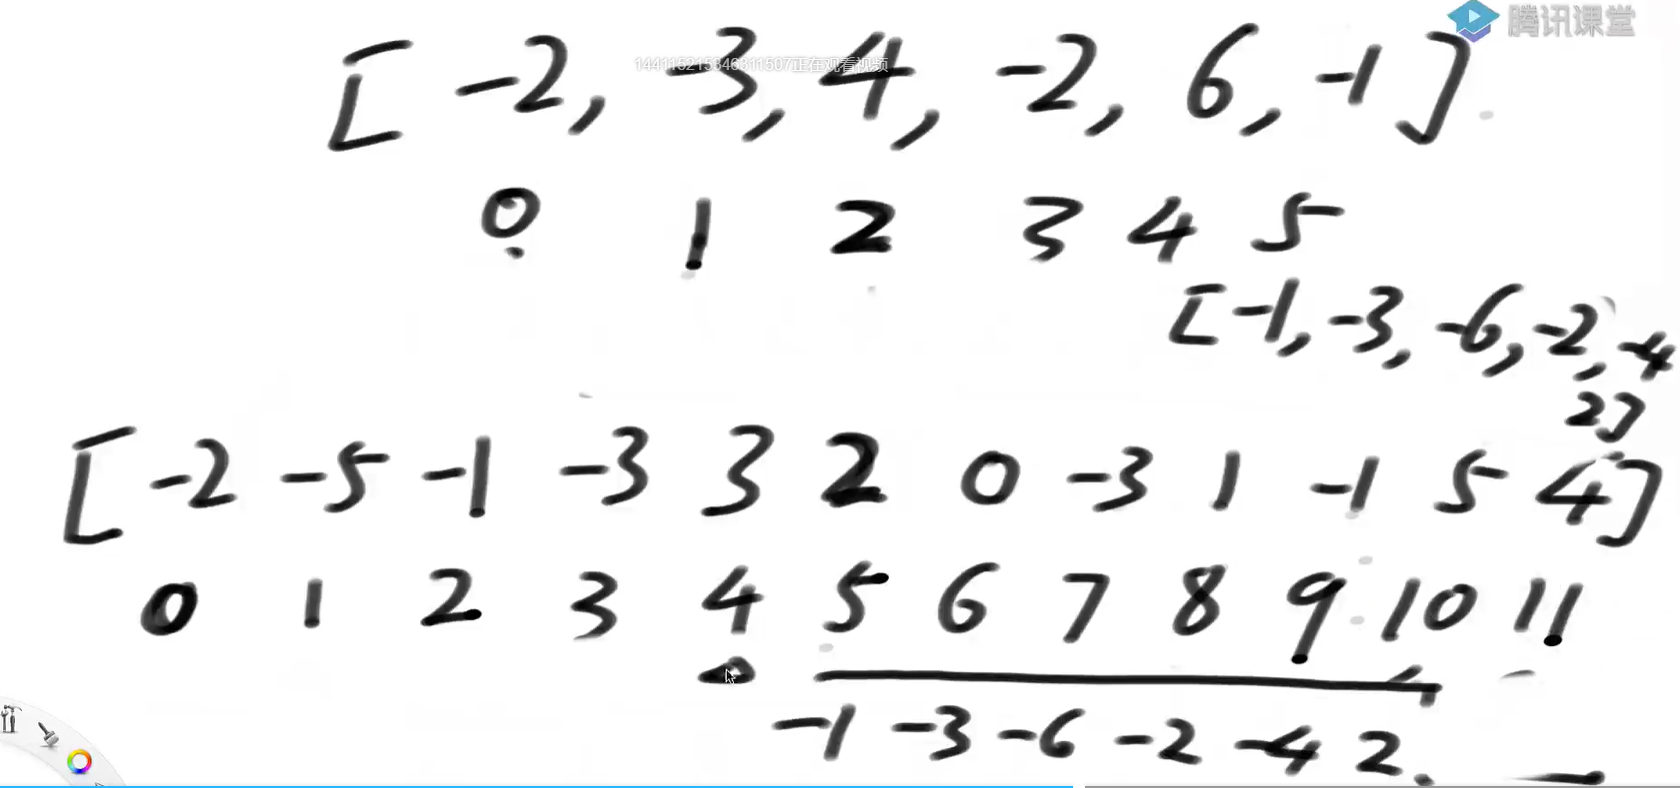 腾讯课堂
[ -2, -3, 4, -2, 6, -1 ]
144115215346311507正在观看视频
0 1 2 3 4 5
[ -1, -3, -6, -2, -4
2]
[ -2 -5 -1 -3 3 2 0 -3 1 -1 5 4 ]
0 1 2 3 4 5 6 7 8 9 10 11
-1 -3 -6 -2 -4 2